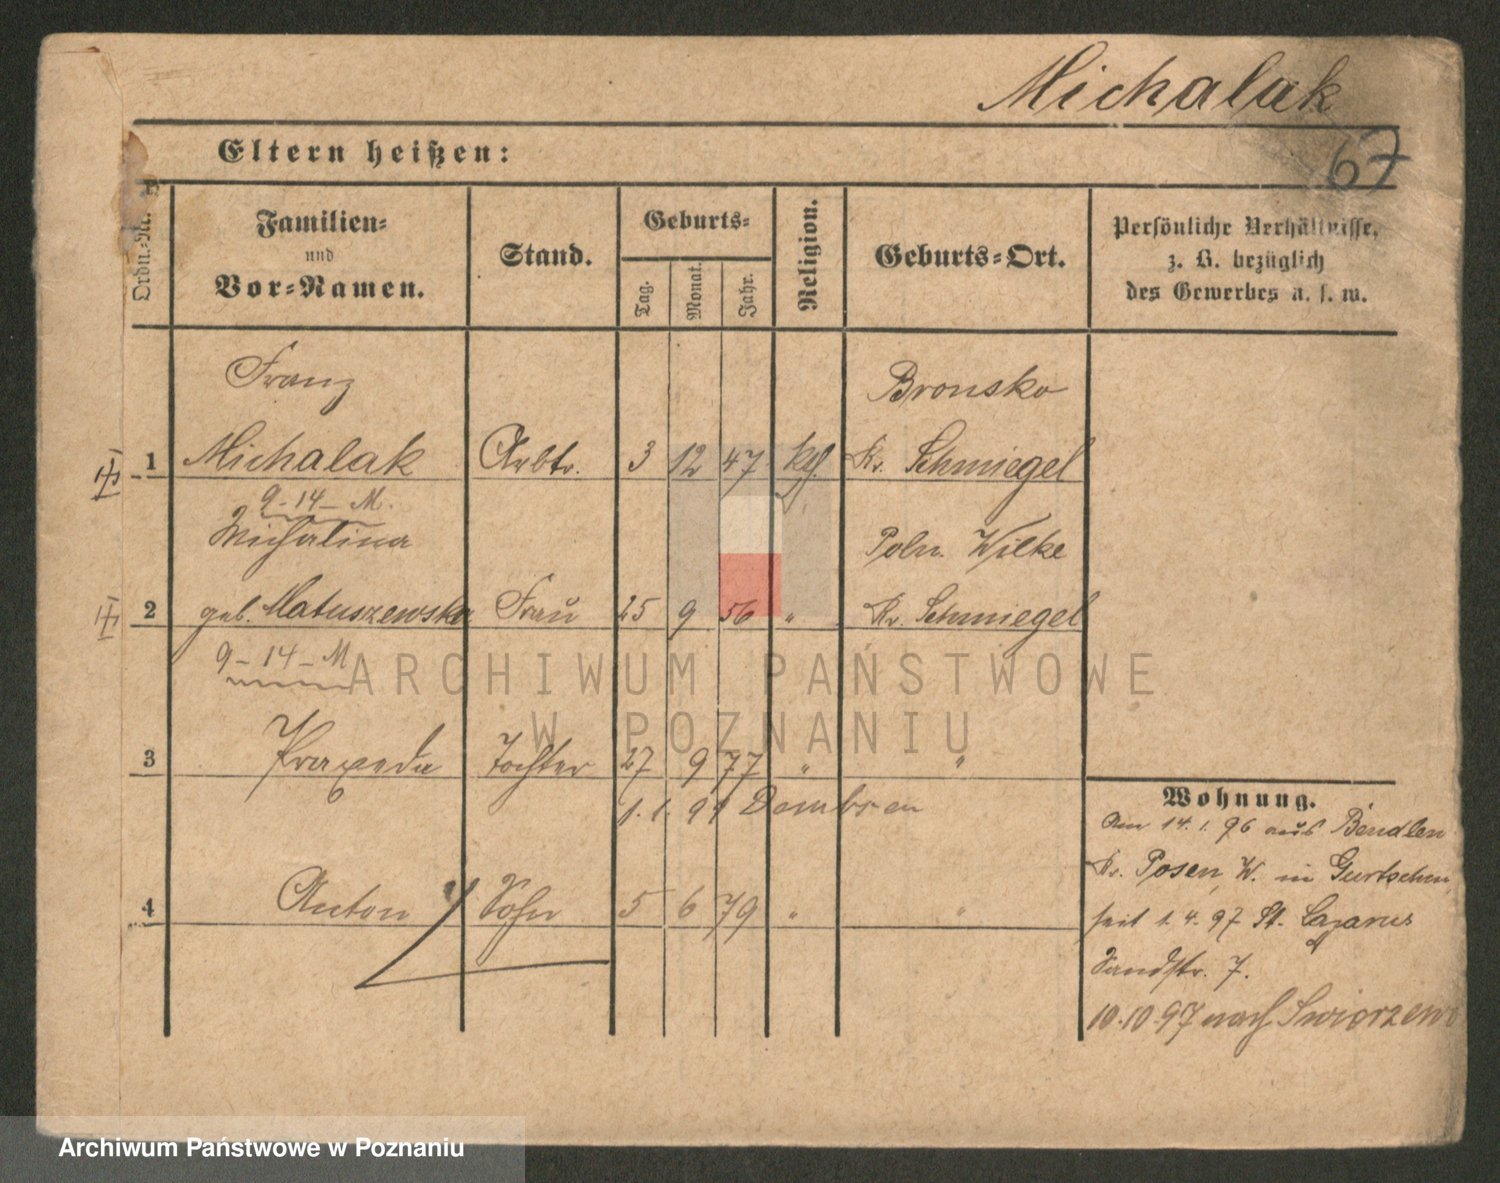 Michalak
67
Eltern heißen:
Ordn.-Nr.
Familien-
und
Vor-Namen.
Stand.
Geburts-
Tag.
Monat.
Jahr.
Religion.
Geburts-Ort.
Persönliche Verhältnisse,
z. B. bezüglich
des Gewerbes u. s. w.
Franz Bronsko
1 Michalak Arbtr. 3 12 47 kth. Kr. Schmiegel
9-14-M.
Michalina Poln. Wilke
2 geb. Matuszewska Frau 25 9 56 " Kr. Schmiegel
9-14-M
ARCHIWUM PAŃSTWOWE
W POZNANIU
3 Praxeda Tochter 27 9 77 " "
1.1.99 Dembsen
4 Anton Sohn 5 6 79 " "
Wohnung.
Am 14.1.96 aus Bendlen
Kr. Posen, W. in Gurtschin,
seit 1.4.97 St. Lazarus
Sandstr. 7.
10.10.97 nach Swierzewo
Archiwum Państwowe w Poznaniu